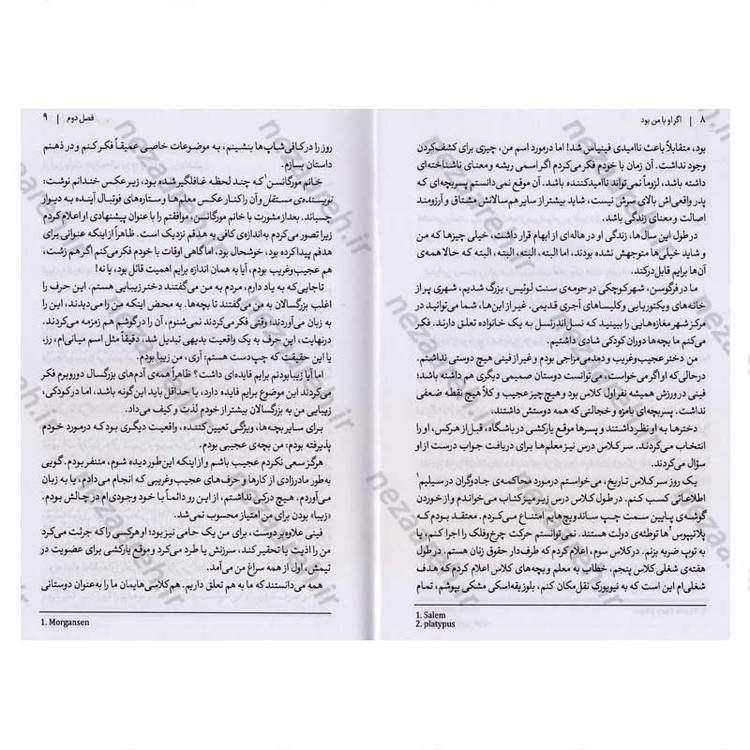 ۸ | اگر او با من بود
بود، متقابلاً باعث ناامیدی فینیاس شد! اما درمورد اسم من، چیزی برای کشف‌کردن
وجود نداشت. آن زمان با خودم فکر می‌کردم اگر اسمی ریشه و معنای ناشناخته‌ای
داشته باشد، لزوماً نمی‌تواند ناامیدکننده باشد. آن موقع نمی‌دانستم پسربچه‌ای که
پدر واقعی‌اش بالای سرش نیست، شاید بیشتر از سایر هم‌سالانش مشتاق و آرزومند
اصالت و معنای زندگی باشد.
در طول این سال‌ها، زندگی او در هاله‌ای از ابهام قرار داشت، خیلی چیزها که من
و شاید خیلی‌ها متوجهش نشده بودند، اما البته، البته، البته، البته که حالا همه‌ی
آن‌ها برایم قابل‌درکند.
ما در فرگوسن، شهر کوچکی در حومه‌ی سنت لوئیس، بزرگ شدیم، شهری پر از
خانه‌های ویکتوریایی و کلیساهای آجری قدیمی. غیر از این‌ها، شما می‌توانید در
مرکز شهر مغازه‌هایی را ببینید که نسل‌اندرنسل به یک خانواده تعلق دارند. فکر
می‌کنم ما بچه‌ها دوران کودکی شادی داشتیم.
من دختر عجیب‌وغریب و دمدمی‌مزاجی بودم و غیر از فینی هیچ دوستی نداشتم.
درحالی‌که او اگر می‌خواست، می‌توانست دوستان صمیمی دیگری هم داشته باشد؛
فینی در ورزش همیشه نفر اول کلاس بود و هیچ‌چیز عجیب و کلاً هیچ نقطه ضعفی
نداشت. پسربچه‌ای بامزه و خجالتی که همه دوستش داشتند.
دخترها به او نظر داشتند و پسرها موقع یارکشی در باشگاه، قبل از همه او را
انتخاب می‌کردند. سر کلاس درس نیز معلم‌ها برای دریافت جواب درست از او
سؤال می‌کردند.
یک روز سر کلاس تاریخ، می‌خواستم درمورد محاکمه‌ی جادوگران در سیلیم۱
اطلاعاتی کسب کنم. در طول کلاس درس زیر میز کتاب می‌خواندم و از خوردن
گوشه‌ی پایین سمت چپ ساندویچ‌هام امتناع می‌کردم. معتقد بودم که
پلاتیپوس۲‌ها توطئه‌ی دولت هستند. نمی‌توانستم حرکت چرخ‌وفلک را اجرا کنم، یا
به توپ ضربه بزنم. در کلاس سوم، اعلام کردم که طرف‌دار حقوق زنان هستم. در طول
هفته‌ی شغلی کلاس پنجم، خطاب به معلم و بچه‌های کلاس اعلام کردم که هدف
شغلی‌ام این است که به نیویورک نقل‌مکان کنم، بلوز یقه‌اسکی مشکی بپوشم، تمام
1. Salem
2. platypus
فصل دوم | ۹
روز را در کافی‌شاپ‌ها بنشینم، به موضوعات خاصی عمیقاً فکر کنم و در ذهنم
داستان بسازم.
خانم مورگانسن۱ که چند لحظه غافلگیر شده بود، زیر عکس خندانم نوشت:
نویسنده‌ی مستقل و آن را کنار عکس معلم‌ها و ستاره‌های فوتبال آینده به دیوار
چسباند. بعد از مشورت با خانم مورگانسن، موافقتم را با عنوان پیشنهادی او اعلام کردم
زیرا تصور می‌کردم به‌اندازه‌ی کافی به هدفم نزدیک است. ظاهراً از اینکه عنوانی برای
هدفم پیدا کرده بود، خوشحال بود، اما گاهی اوقات با خودم فکر می‌کنم اگر هم زشت،
هم عجیب‌وغریب بودم، آیا به همان اندازه برایم اهمیت قائل بود، یا نه!
تا جایی که به یاد دارم، مردم به من می‌گفتند دختر زیبایی هستم. این حرف را
اغلب بزرگسالان به من می‌گفتند تا بچه‌ها. به محض اینکه من را می‌دیدند، این را
به زبان می‌آوردند؛ وقتی فکر می‌کردند نمی‌شنوم، آن را در گوشم هم زمزمه می‌کردند.
درنهایت، این حرف به یک واقعیت بدیهی تبدیل شد، دقیقاً مثل اسم میانی‌ام، رز،
یا این حقیقت که چپ‌دست هستم: آری، من زیبا بودم.
اما آیا زیبا‌بودنم برایم فایده‌ای داشت؟ ظاهراً همه‌ی آدم‌های بزرگسال دوروبرم فکر
می‌کردند این موضوع برایم فایده دارد، یا حداقل باید این‌گونه باشد، اما در کودکی،
زیبایی من به بزرگسالان بیشتر از خودم لذت و کیف می‌داد.
برای سایر بچه‌ها، ویژگی تعیین‌کننده، واقعیت دیگری بود که درمورد خودم
پذیرفته بودم: من بچه‌ی عجیبی بودم.
هرگز سعی نکردم عجیب باشم و از اینکه این‌طور دیده شوم، متنفر بودم. گویی
به‌طور مادرزادی از کارها و حرف‌های عجیب‌وغریبی که انجام می‌دادم، یا به زبان
می‌آوردم، هیچ درکی نداشتم، از این رو دائماً با خود وجودی‌ام در چالش بودم.
«زیبا» بودن برای من امتیاز محسوب نمی‌شد.
فینی علاوه‌بر دوست، برای من یک حامی نیز بود؛ او هرکسی را که جرئت می‌کرد
من را اذیت یا تحقیر کند، سرزنش یا طرد می‌کرد و موقع یارکشی برای عضویت در
تیمش، اول از همه سراغ من می‌آمد.
همه می‌دانستند که ما به هم تعلق داریم. هم‌کلاسی‌هایمان ما را به‌عنوان دوستانی
1. Morgansen
nezareh.ir